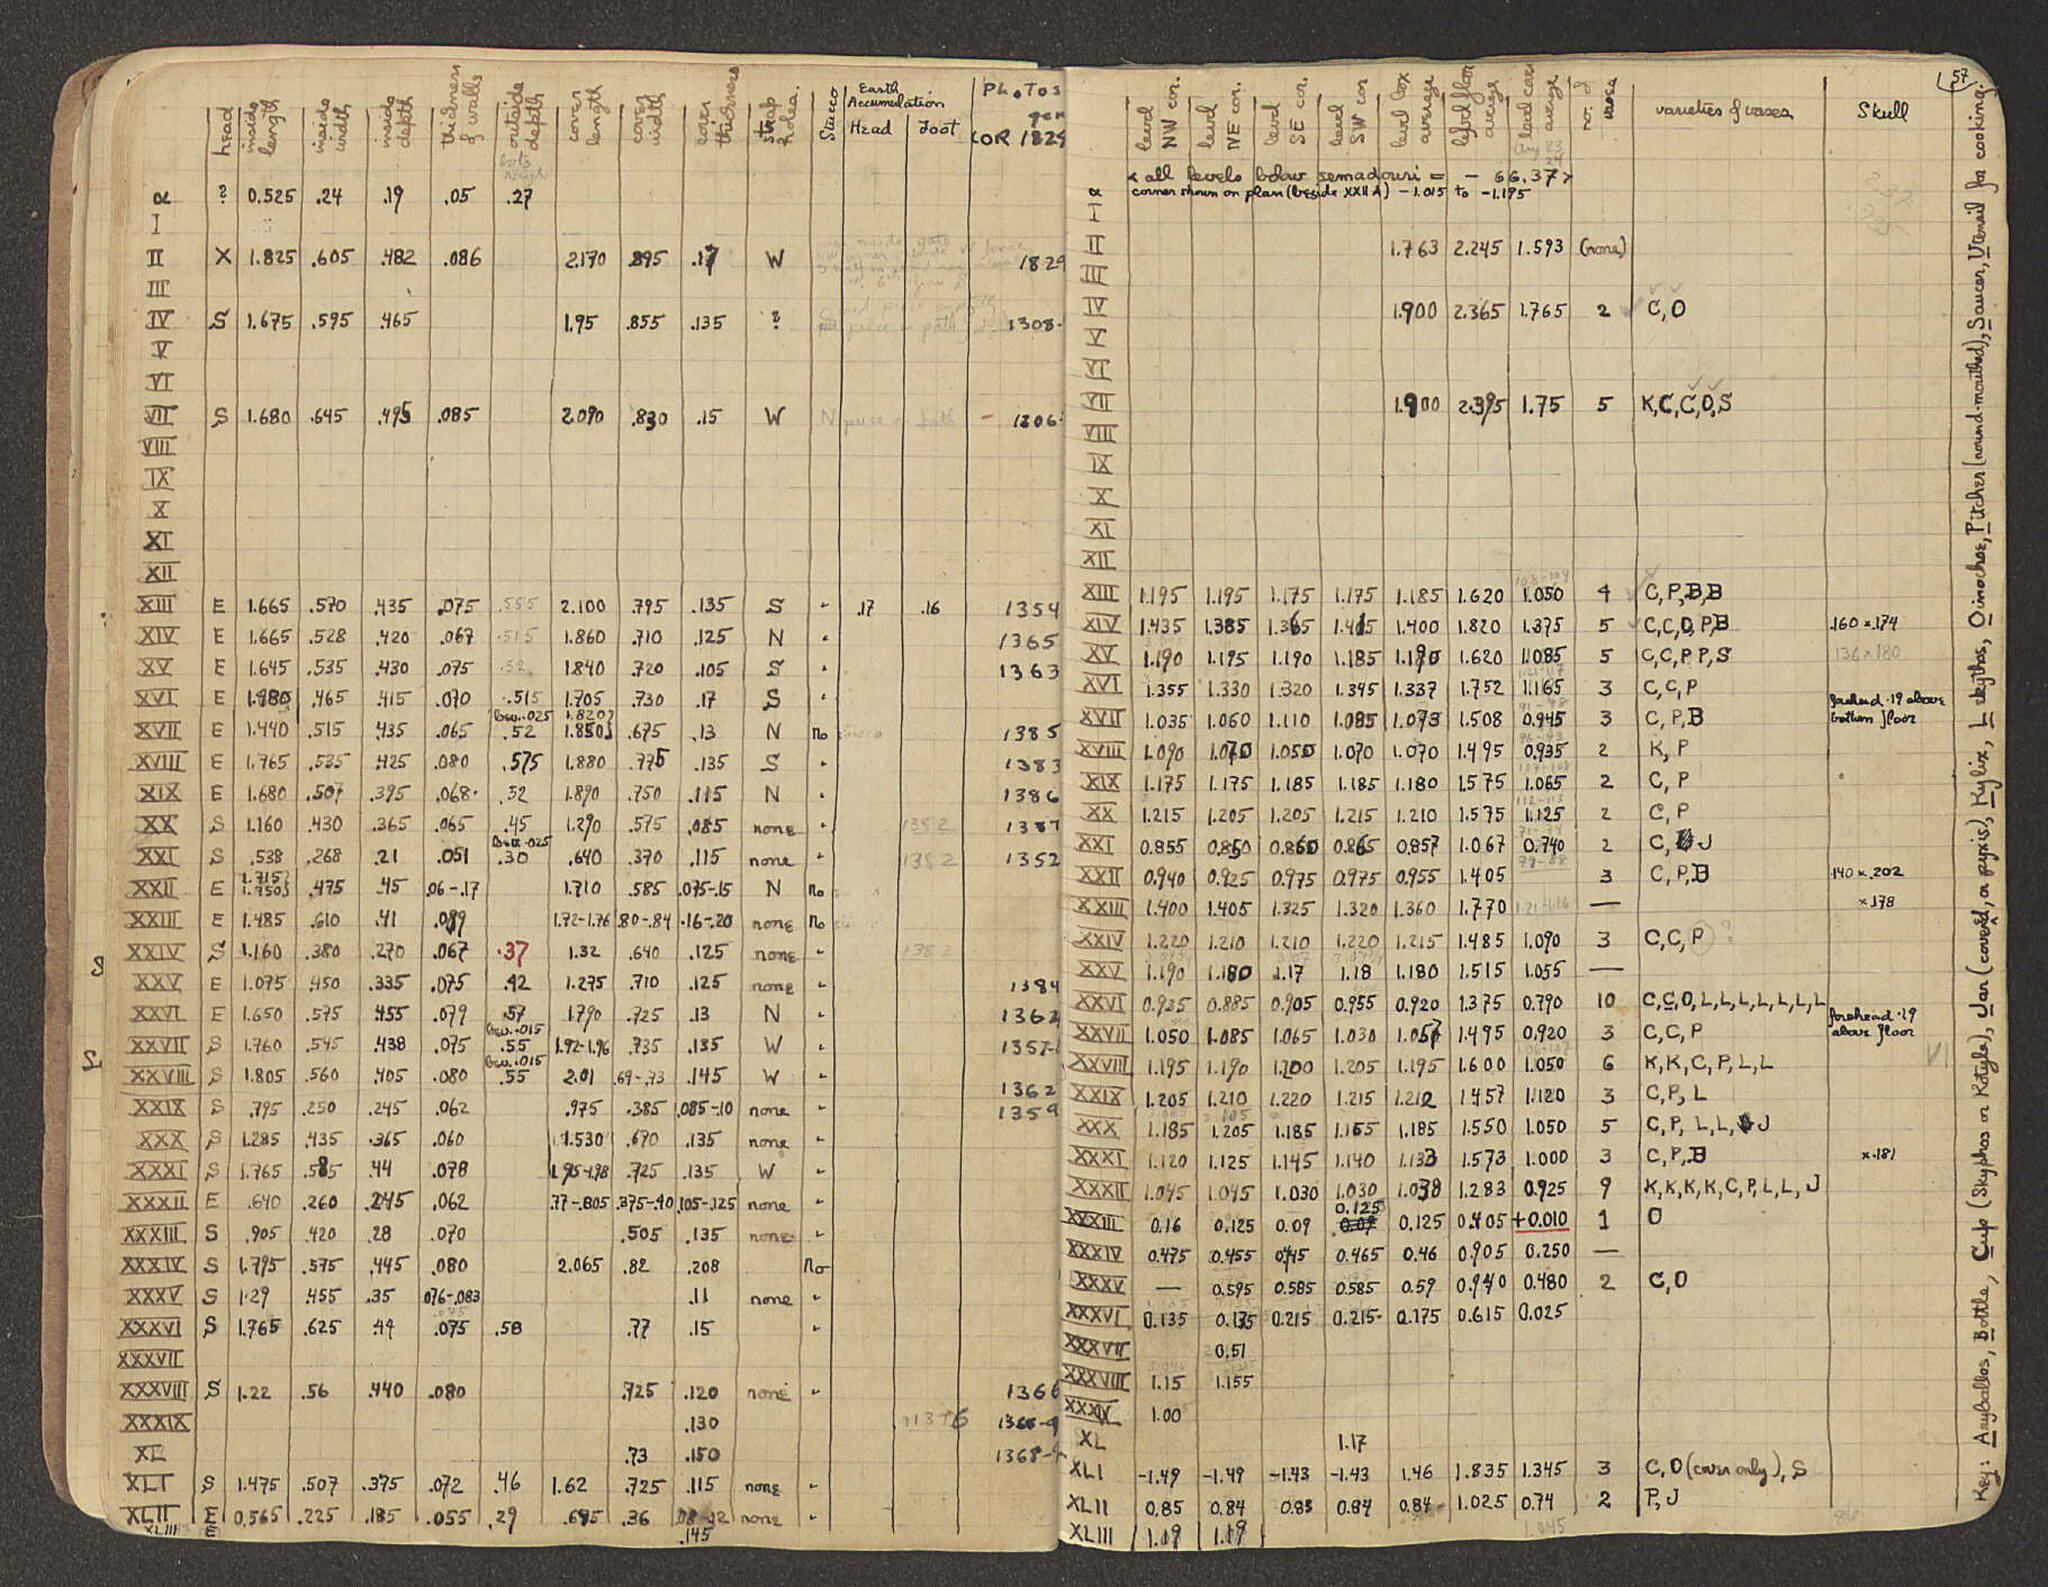 head inside length inside width inside depth thickness of walls outside depth cover length cover width cover thickness strap holes Stucco Earth Accumulation Head Foot Photos gen COR 1829
α ? 0.525 .24 .19 .05 .27
I
II X 1.825 .605 .482 .086 2.170 .895 .17 W 1829
III
IV S 1.675 .595 .465 1.95 .855 .135 ? 1308-
V
VI
VII S 1.680 .645 .495 .085 2.090 .830 .15 W 1306-
VIII
IX
X
XI
XII
XIII E 1.665 .570 .435 .075 .555 2.100 .795 .135 S " .17 .16 1354
XIV E 1.665 .528 .420 .067 .515 1.860 .710 .125 N " 1365
XV E 1.645 .535 .430 .075 .52 1.840 .720 .105 S " 1363
XVI E 1.980 .465 .415 .070 .515 1.705 .730 .17 S "
XVII E 1.440 .515 .435 .065 .52 1.820? 1.850 .675 .13 N no 1385
XVIII E 1.765 .535 .425 .080 .575 1.880 .775 .135 S " 1383
XIX E 1.680 .507 .395 .068 .52 1.890 .750 .115 N " 1386
XX S 1.160 .430 .365 .065 .45 1.290 .575 .085 none " 1352 1387
XXI S .538 .268 .21 .051 .30 .640 .370 .115 none " 1382 1352
XXII E 1.715? 1.750 .475 .45 .06-.17 1.710 .585 .075-.15 N no
XXIII E 1.485 .610 .41 .089 1.72-1.76 .80-.84 .16-.20 none no
XXIV S 1.160 .380 .270 .067 .37 1.32 .640 .125 none "
XXV E 1.075 .450 .335 .075 .42 1.275 .710 .125 none " 1384
XXVI E 1.650 .575 .455 .079 .57 1.790 .725 .13 N " 1362
XXVII S 1.760 .545 .438 .075 .55 1.92-1.96 .735 .135 W " 1357-
XXVIII S 1.805 .560 .405 .080 .55 2.01 .69-.73 .145 W " 1362
XXIX S .795 .250 .245 .062 .975 .385 .085-.10 none " 1359
XXX S 1.285 .435 .365 .060 1.530 .670 .135 none "
XXXI S 1.765 .585 .44 .078 1.95-1.98 .725 .135 W "
XXXII E .640 .260 .245 .062 .77-.805 .375-.40 .105-.125 none "
XXXIII S .905 .420 .28 .070 .505 .135 none "
XXXIV S 1.795 .575 .445 .080 2.065 .82 .208 no
XXXV S 1.29 .455 .35 .076-.083 .11 none "
XXXVI S 1.765 .625 .49 .075 .58 .77 .15 "
XXXVII
XXXVIII S 1.22 .56 .440 .080 .725 .120 none " 1366
XXXIX .130 1376
XL .73 .150 1368-
XLI S 1.475 .507 .375 .072 .46 1.62 .725 .115 none "
XLII E 0.565 .225 .185 .055 .29 .695 .36 none "
XLIII E .145
57
level NW cor. level NE cor. level SE cor. level SW cor level box average level floor average level cover average no. of vases varieties of vases Skull
< all levels below semadouri = - 66.37>
α corner shown on plan (beside XXII A) -1.015 to -1.195
I
II 1.763 2.245 1.593 (none)
III
IV 1.900 2.365 1.765 2 C, O
V
VI
VII 1.900 2.395 1.75 5 K, C, C, O, S
VIII
IX
X
XI
XII
XIII 1.195 1.195 1.175 1.175 1.185 1.620 1.050 4 C, P, B, B
XIV 1.435 1.385 1.365 1.415 1.400 1.820 1.375 5 C, C, O, P, B .160 x .174
XV 1.190 1.195 1.190 1.185 1.190 1.620 1.085 5 C, C, P, P, S 136 x 180
XVI 1.355 1.330 1.320 1.345 1.337 1.752 1.165 3 C, C, P
XVII 1.035 1.060 1.110 1.085 1.073 1.508 0.945 3 C, P, B forehead .19 above bottom floor
XVIII 1.090 1.070 1.050 1.070 1.070 1.495 0.935 2 K, P
XIX 1.175 1.175 1.185 1.185 1.180 1.575 1.065 2 C, P
XX 1.215 1.205 1.205 1.215 1.210 1.575 1.125 2 C, P
XXI 0.855 0.850 0.860 0.865 0.857 1.067 0.740 2 C, J
XXII 0.940 0.925 0.975 0.975 0.955 1.405 3 C, P, B .140 x .202
XXIII 1.400 1.405 1.325 1.320 1.360 1.770 — x .178
XXIV 1.220 1.210 1.210 1.220 1.215 1.485 1.090 3 C, C, P
XXV 1.190 1.180 1.17 1.18 1.180 1.515 1.055 —
XXVI 0.935 0.885 0.905 0.955 0.920 1.375 0.790 10 C, C, O, L, L, L, L, L, L, L
XXVII 1.050 1.085 1.065 1.030 1.057 1.495 0.920 3 C, C, P forehead .19 above floor
XXVIII 1.195 1.190 1.200 1.205 1.195 1.600 1.050 6 K, K, C, P, L, L
XXIX 1.205 1.210 1.220 1.215 1.212 1.457 1.120 3 C, P, L
XXX 1.185 1.205 1.185 1.165 1.185 1.550 1.050 5 C, P, L, L, J
XXXI 1.120 1.125 1.145 1.140 1.133 1.573 1.000 3 C, P, B x .181
XXXII 1.045 1.045 1.030 1.030 1.038 1.283 0.925 9 K, K, K, K, C, P, L, L, J
XXXIII 0.16 0.125 0.09 0.125 0.125 0.405 +0.010 1 O
XXXIV 0.475 0.455 0.445 0.465 0.46 0.905 0.250 —
XXXV — 0.595 0.585 0.585 0.59 0.940 0.480 2 C, O
XXXVI 0.135 0.135 0.215 0.215 0.175 0.615 0.025
XXXVII 0.51
XXXVIII 1.15 1.155
XXXIX 1.00
XL 1.17
XLI -1.49 -1.49 -1.43 -1.43 1.46 1.835 1.345 3 C, O (cover only), S
XLII 0.85 0.84 0.83 0.84 0.84 1.025 0.74 2 P, J
XLIII 1.19 1.19 1.045
Key: Aryballos, Bottle, Cup (Skyphos or Kotyle), Jar (covered, or pyxis), Kylix, Lekythos, Oinochoe, Pitcher (round-mouthed), Saucer, Utensil for cooking.